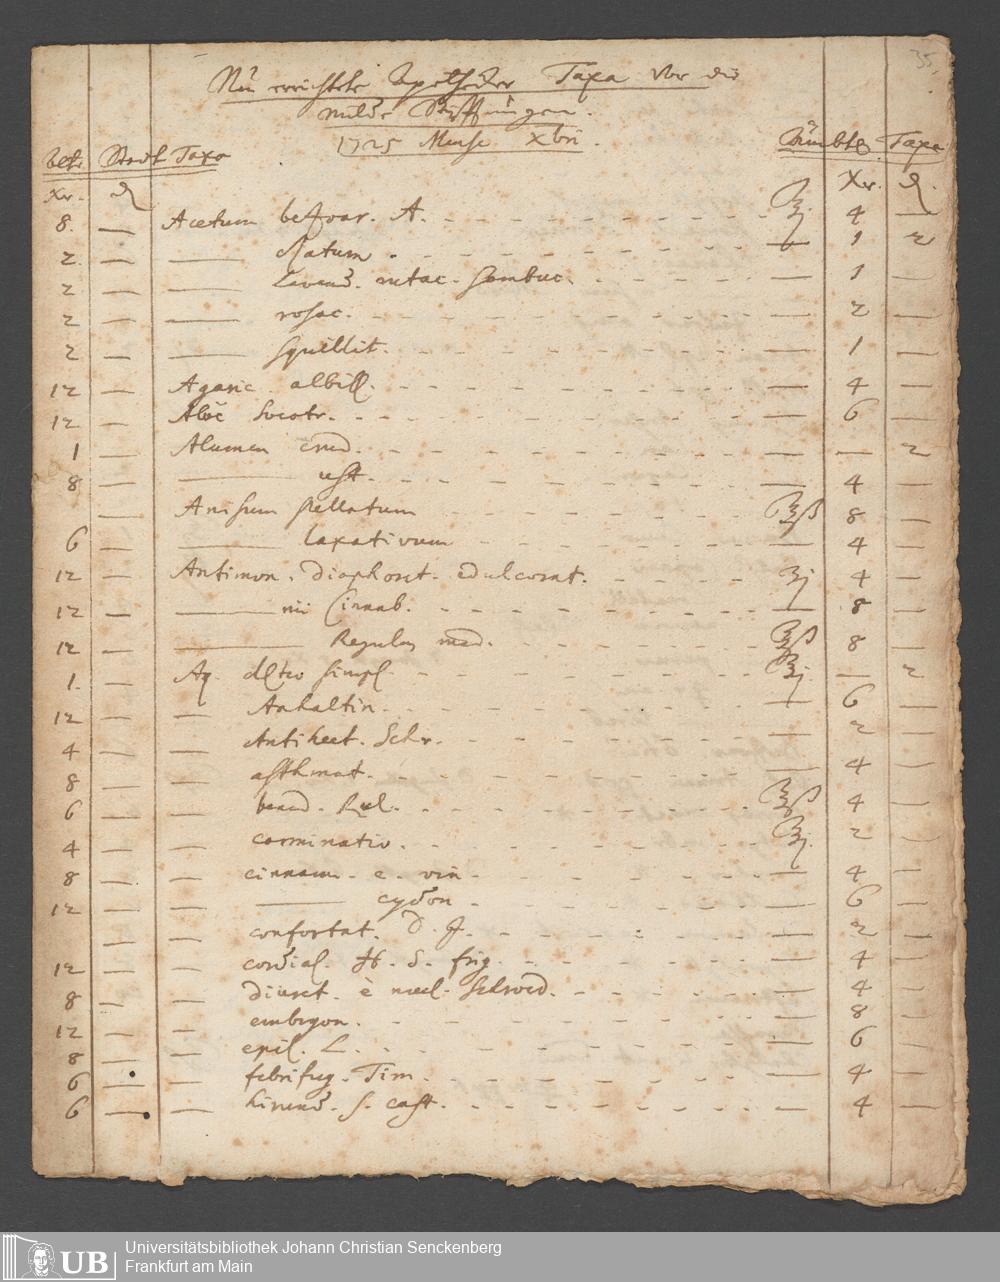 35.
Neu errichtete Apothecker Taxa vor die
milde Stifftungen.
1725 Mense Xbri.
Stadt Taxa
Taxa
Xr. Xr.
8. — Acetum bezoar. A. 4 —
2. — — 1 2
2 — — Lavend. rutac. Sambuc. — 1 —
2 — — rosac. — 2 —
2 — — Squillit. — 1 —
12 — Agaric albiss. — 4 —
12 — Aloë Socotr. — 6 —
1 — Alumen crud. — — 2
8 — — ust. — 4 —
— Anisum stellatum ℥ß 8 —
6 — — laxativum — 4 —
12 — Antimon. diaphoret. edulcorat. ʒj 4 —
12 — — nii Cinnab. — 8 —
12 — — Regulus med. ℥ß 8 —
1. — Aq. simpl. ℥j — 2
12 — — Anhaltin. — 6 —
4 — — Antihect. Schr. — 2 —
8 — — asthmat. — 4 —
6 — — bened. Rul. ℥ß 4 —
4 — — carminativ. ℥j 2 —
8 — — cinnam. c. vin. — 4 —
12 — — — cydon. — 6 —
— — confortat. D. J. — 2 —
12 — — cordial. H. S. frig. — 4 —
8 — — diuret. è Schroed. — 4 —
12 — — embryon. — 8 —
8 — — epil. L. — 6 —
6 — — febrifug. Tim. — 4 —
6 — — hirund. s. cast. — 4 —
UB
Universitätsbibliothek Johann Christian Senckenberg
Frankfurt am Main